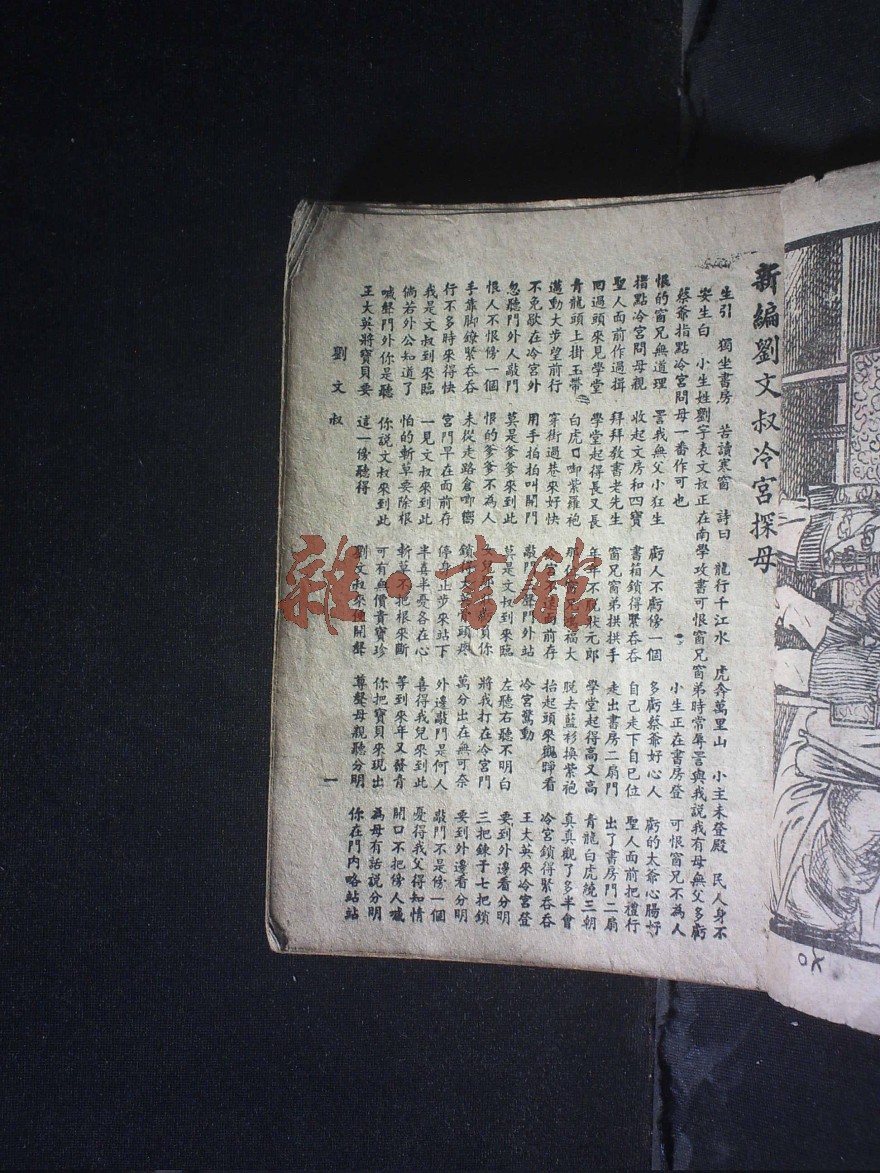 新編劉文叔冷宮探母
生引 獨坐書房 苦讀寒窗 詩曰 龍行千江水 虎奔萬里山 小主未登殿 民人身不
安生白 小生姓劉字表文叔正在南學攻書可恨窗兄窗弟時常辱罵與我說我有母無父多虧
蔡爺指點冷宮問母一番作可也 小生正在書房登 可恨窗兄不為人
恨的窗兄無道理 罵我無父小狂生 虧人不虧傍一個 多虧蔡爺好心人 虧的太爺心腸好
指點冷宮問母親 收起文房和四寶 書箱鎖得緊吞吞 自己走下自已位 聖人面前把禮行
聖人面前作過揖 拜拜教書老先生 窗兄窗弟拱拱手 走出書房二扇門 出了書房門二扇
回過頭來見學堂 學堂起得長又長 年年不脫狀元郎 學堂起得高又高 青龍白虎繞三朝
青龍頭上掛玉帶 白虎口啣紫羅袍 福大 脫去藍衫換紫袍 真真觀了多半會
邁動大步望前行 穿街過巷來好快 冷宮 面前存 抬起頭來觀睜看 冷宮鎖得緊吞吞
不免歇在冷宮外 用手拍拍叫開門 敲門 聲門外站 冷宮驚動 王大英來冷宮登
忽聽門外人敲門 莫是爹爹來到此 莫是文叔到來臨 左聽右聽不明白 要到外邊看分明
恨人不恨傍一個 恨的爹爹不為人 負你 將我打在冷宮門 三把鍊子七把鎖
手靠脚鐐緊吞吞 未從走路倉啷響 鎖 頭疼 萬分出在無可奈 要到外邊看分明
行不多時來得快 宮門早在面前存 停身止步來站下 外邊敲門是何人 敲門不是傍一個
我是文叔到來臨 一見文叔來到此 半喜半憂各在心 喜得我兒來到此 憂得我父得知情
倘若外公知道了 怕的斬草要除根 斬草不把根來斷 等到來年又發青 開口不把傍人喊
喊聲門外你是聽 你說文叔來到此 可有無價貴寶珍 你把寶貝來現出 為母有話說分明
王大英將寶貝要 這一傍聽得 劉文叔來 開聲 尊聲母親聽分明 你在門內略站站
劉文叔 一